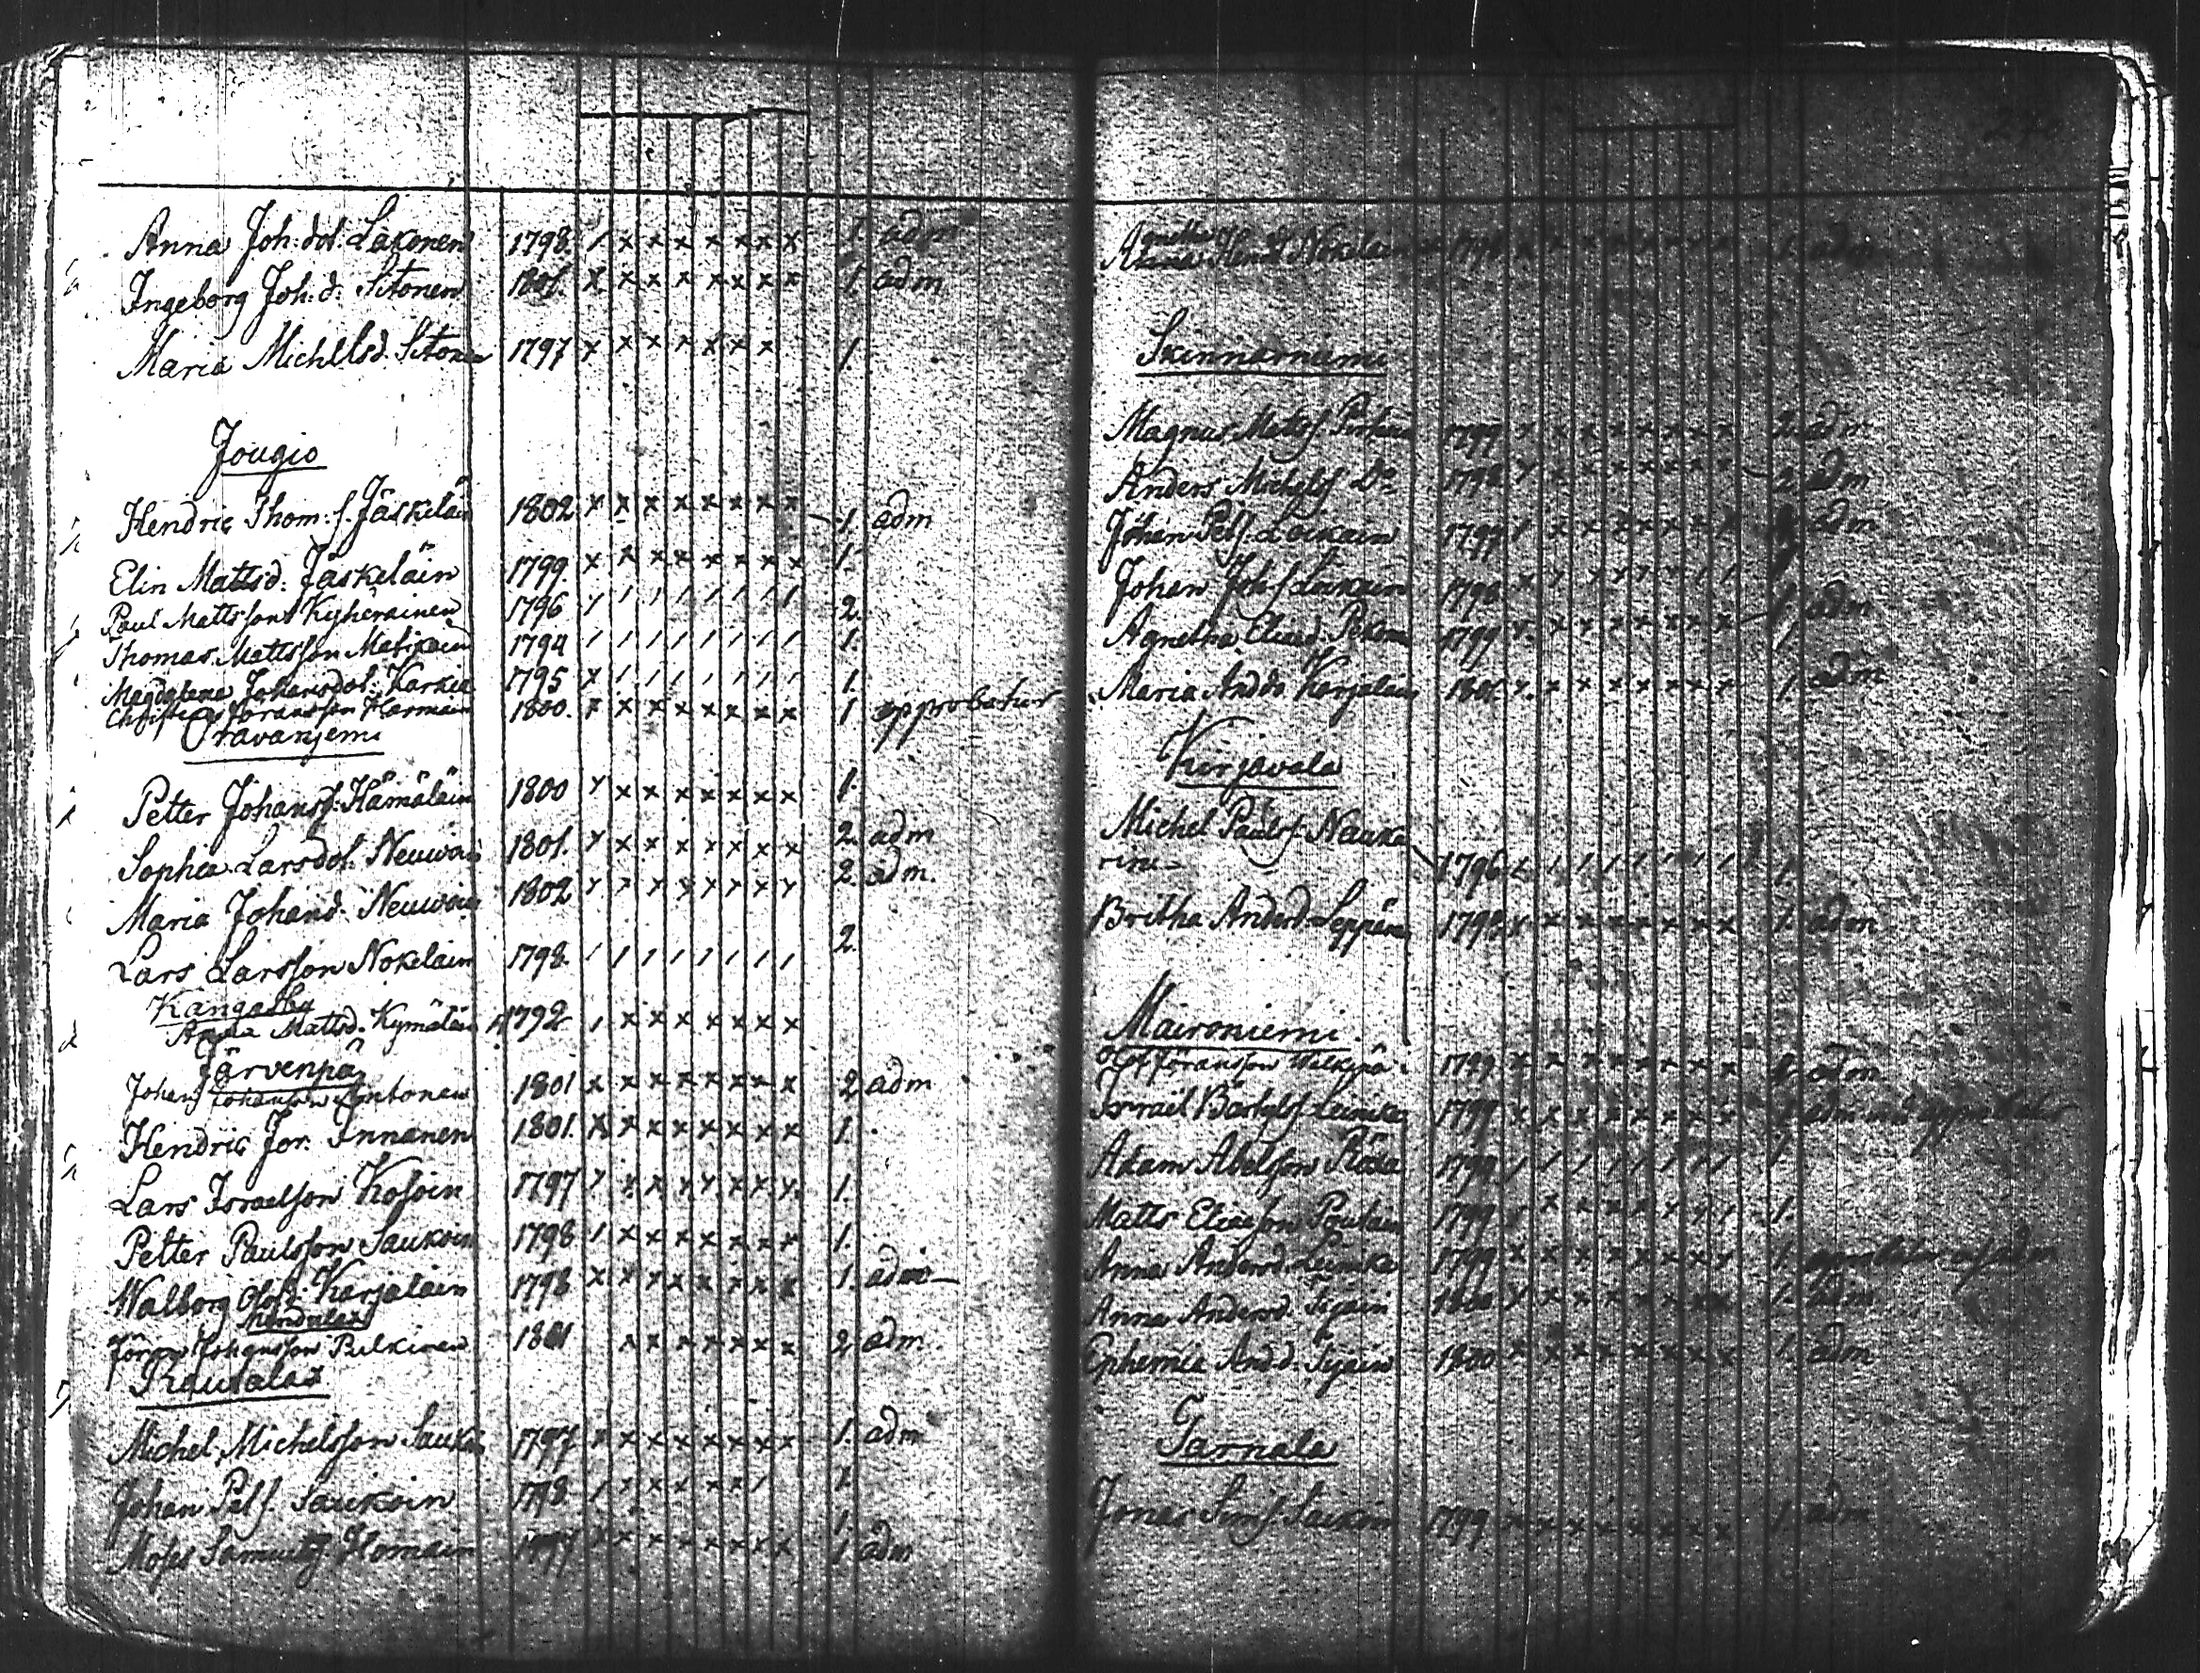 Anna Joh: dot. Läkonen 1798. / x x x x x x x 1. adm
Ingeborg Joh: d: Sitonen 1801. x x x x x x x x 1. adm
Maria Michelsd. Sitonen 1797 x x x x x x x 1.
Jougio
Hendric Thom: s. Jäskeläin 1802 x x x x x x x x 1. adm
Elin Mattsd: Jäskeläin 1799. x x x x x x x x 1.
Paul Mattsson Kyheräinen 1796 / / / / / / / / 2.
Thomas Mattsson Matikain 1794 / / / / / / / / 1.
Magdalena Johansdot. Karkia 1795 x / / / / / / / 1.
Christian Joransson Harmain 1800. x x x x x x x x 1 approbatur
Oravaniemi
Petter Johanss: Hämäläin 1800 x x x x x x x x 1.
Sophia Larsdot. Neuwoin 1801. x x x x x x x x 2. adm
Maria Johansd. Neuwoin 1802 x x x x x x x x 2. adm.
Lars Larsson Nokelain 1798. / / / / / / / / 2.
Kangasby
Anna Mattsd. Kymäläin 1792 / x x x x x x x
Järvenpä
Johan Johansson Lintonen 1801 x x x x x x x x 2 adm
Hendric Jor. Innanen 1801. x x x x x x x x 1.
Lars Israelsson Kosoin 1797 x x x x x x x x 1.
Petter Paulsson Saukoin 1798 / x x x x x x x 1.
Walborg Olofs: Karjalain 1798 x x x x x x x x 1. adm
Jöran Johansson Pulkinen 1801 x x x x x x x 2 adm.
Rautalax
Michel Michelsson Saukoin 1797 x x x x x x x x 1. adm
Johan Pet s. Saukoin 1798. / x x x x x / 1.
Moses Samuels. Homain 1797 x x x x x x x x 1. adm
Agnetha Nokelain 1798 x x x x x x x x 1. adm
Skinnarniemi
Magnus Matts s. 1799 x x x x x x x x 2. adm
Anders Michels s. Do 1798 x x x x x x x x 2. adm
Johan Pet s. Loikain 1799 / x x x x x x x adm
Johan Joh. s. Loikain 1798 x x x x x x / /
Agnetha Eliasd. Pekonen 1799 x x x x x x x x 1. adm
Maria And. do. Karjalain 1801. x x x x x x x x 1. adm
Kirjavala
Michel Pauls s. Nauka
rine 1796 / / / / / / / / 1.
Britha Andersd. Leppänen 1798 x x x x x x x x 1. adm
Maironiemi
Olof Joransson 1799 x x x x x x x x adm
Israel Bertels s. Leinika 1799 x x x x x x x x
Adam Abelsson Räsä 1799. / / / / / / / / 1.
Matts Eliasson Poutain 1799 x x x x x x x / 1.
Anna Andersd. Leinika 1799 x x x x x x x x 1.
Anna Andersd. Tijain 1800 x x x x x x x x 1. adm
Ephemia And.d. Tijain 1800 x x x x x x x x 1. adm
Tarnala
Jonas Sim s. Saukoin 1799. x x x x x x x x 1. adm